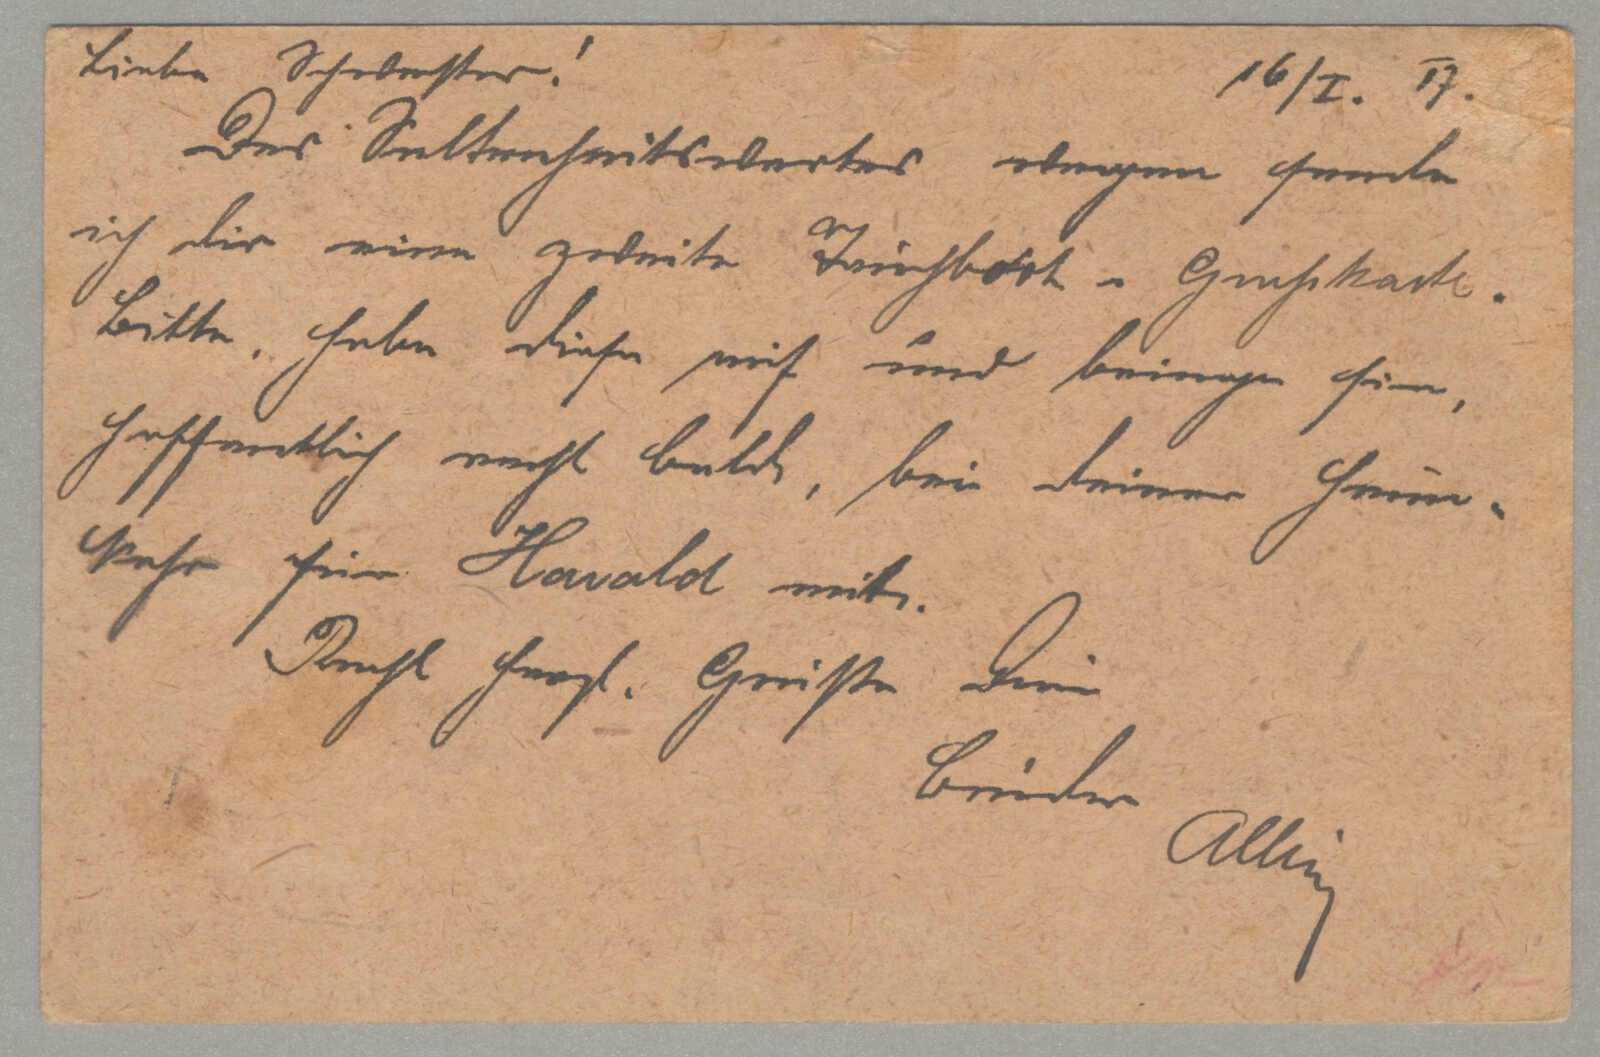 Liebe Schwester! 16/I. 17.
Des Seltenheitswertes wegen sende
ich dir eine zweite Tauchboot - Grußkarte.
Bitte, hebe diese auf und bringe sie,
hoffentlich recht bald, bei deiner Heim-
kehr für Harald mit.
Recht herzl. Grüße Dein
Bruder